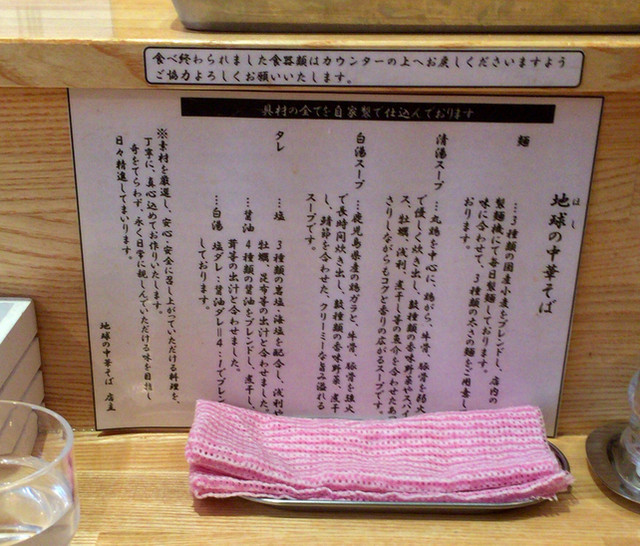 食べ終わられました食器類はカウンターの上へお戻しくださいますよう
ご協力よろしくお願いいたします。
具材の全てを自家製で仕込んでおります
地球の中華そば
ほし
麺
…3種類の国産小麦をブレンドし、店内の
製麺機にて毎日製麺しております。
味に合わせて、3種類の太さの麺をご用意し
おります。
清湯スープ
…丸鶏を中心に、鶏がら、牛骨、豚骨を弱火
で優しく炊き出し、数種類の香味野菜やスパイ
ス、牡蠣、浅利、煮干し等の魚介を合わせたあ
さりしながらもコクと香りの広がるスープです。
白湯スープ
…鹿児島県産の鶏ガラと、牛骨、豚骨を強火
で長時間炊き出し、数種類の香味野菜、煮干
し、鯖節を合わせた、クリーミーな旨み溢れる
スープです。
タレ
…塩
3種類の岩塩・海塩を配合し、浅利や
牡蠣、昆布等の出汁と合わせました。
…醤油
4種類の醤油をブレンドし、煮干し、
茸等の出汁と合わせました。
…白湯
塩ダレ:醤油ダレ=4:1でブレン
しております。
※素材を厳選し、安心・安全に召し上がっていただける料理を、
丁寧に、真心込めてお作りいたします。
奇をてらわず、永く日常に親しんでいただける味を目指し
日々精進してまいります。
地球の中華そば 店主